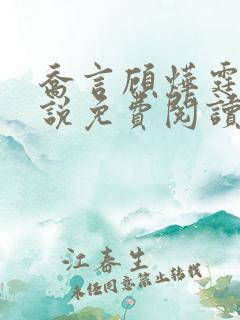 喬言顧燁霆
說免費閱讀
江春生
未经同意禁止转载